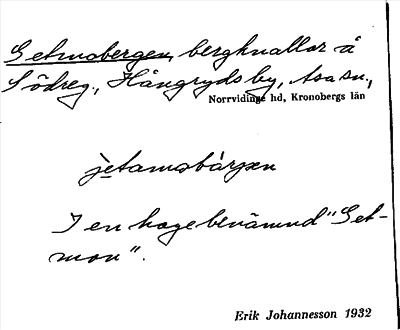 Getmobergen, bergknallar å
Södreg., Hångryds by, Asa sn.,
Norrvidinge hd, Kronobergs län
jetamobàrjen
I en hage benämnd "Get-
mon".
Erik Johannesson 1932